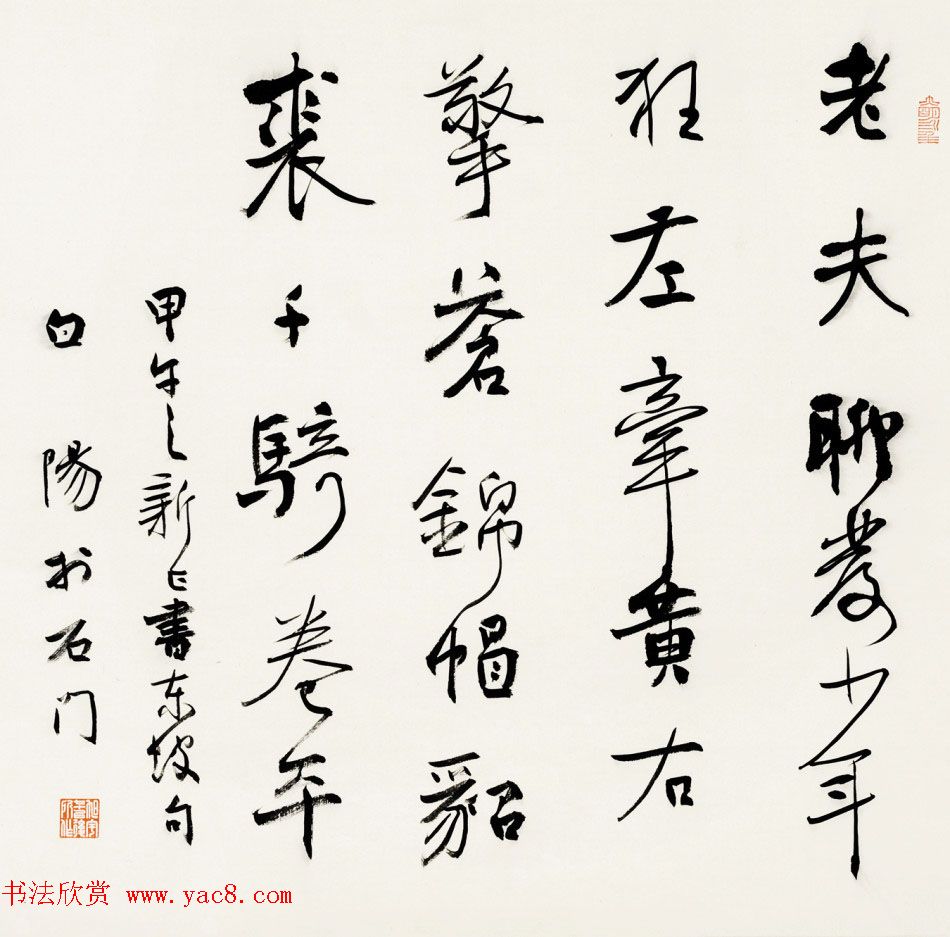 老夫聊發少年
狂左牽黃右
擎蒼錦帽貂
裘千騎卷平
甲午之新正書东坡句
白陽於石门
书法欣赏 www.yac8.com